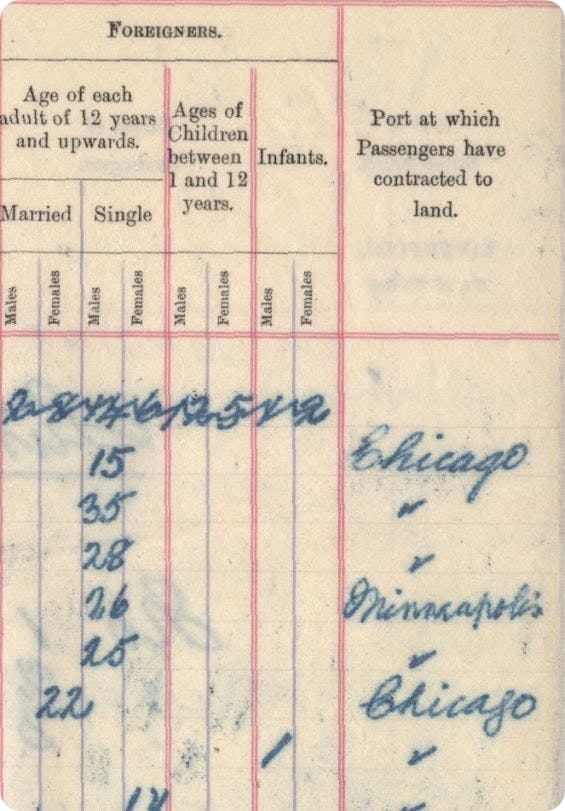 FOREIGNERS.
Age of each
adult of 12 years
and upwards.
Ages of
Children
between
1 and 12
years.
Infants.
Port at which
Passengers have
contracted to
land.
Married Single
Males Females Males Females Males Females Males Females
15 Chicago
35 〃
28 〃
26 Minneapolis
25 〃
22 Chicago
1 〃